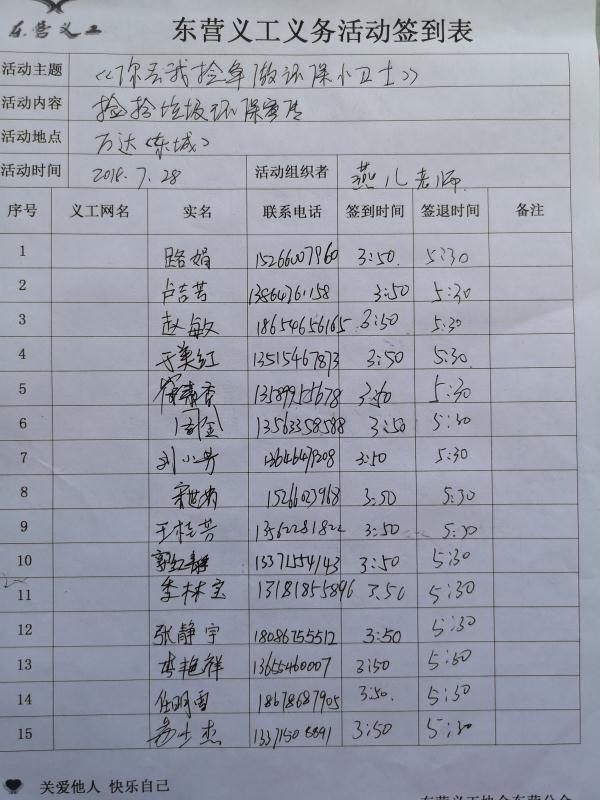 东营义工
东营义工义务活动签到表
活动主题 《你丢我捡争做环保小卫士》
活动内容 捡拾垃圾环保宣传
活动地点 万达(东城)
活动时间 2018.7.28 活动组织者 燕儿老师
序号 义工网名 实名 联系电话 签到时间 签退时间 备注
1 路娟 15266007960 3:50 5:30
2 卢吉芸 13864761158 3:50 5:30
3 赵敏 18654656165 3:50 5:30
4 于美红 13515467873 3:50 5:30
5 3:50 5:30
6 13563358588 3:50 5:30
7 刘小丹 3:50 5:30
8 15266023968 3:50 5:30
9 王桂芸 13562281822 3:50 5:30
10 郭红 13371554143 3:50 5:30
11 李林宝 13181855896 3:50 5:30
12 张静宇 18086755512 3:50 5:30
13 李艳祥 13655460007 3:50 5:30
14 任明雷 18678687905 3:50 5:30
15 3:50 5:30
关爱他人 快乐自己
东营义工协会东营分会